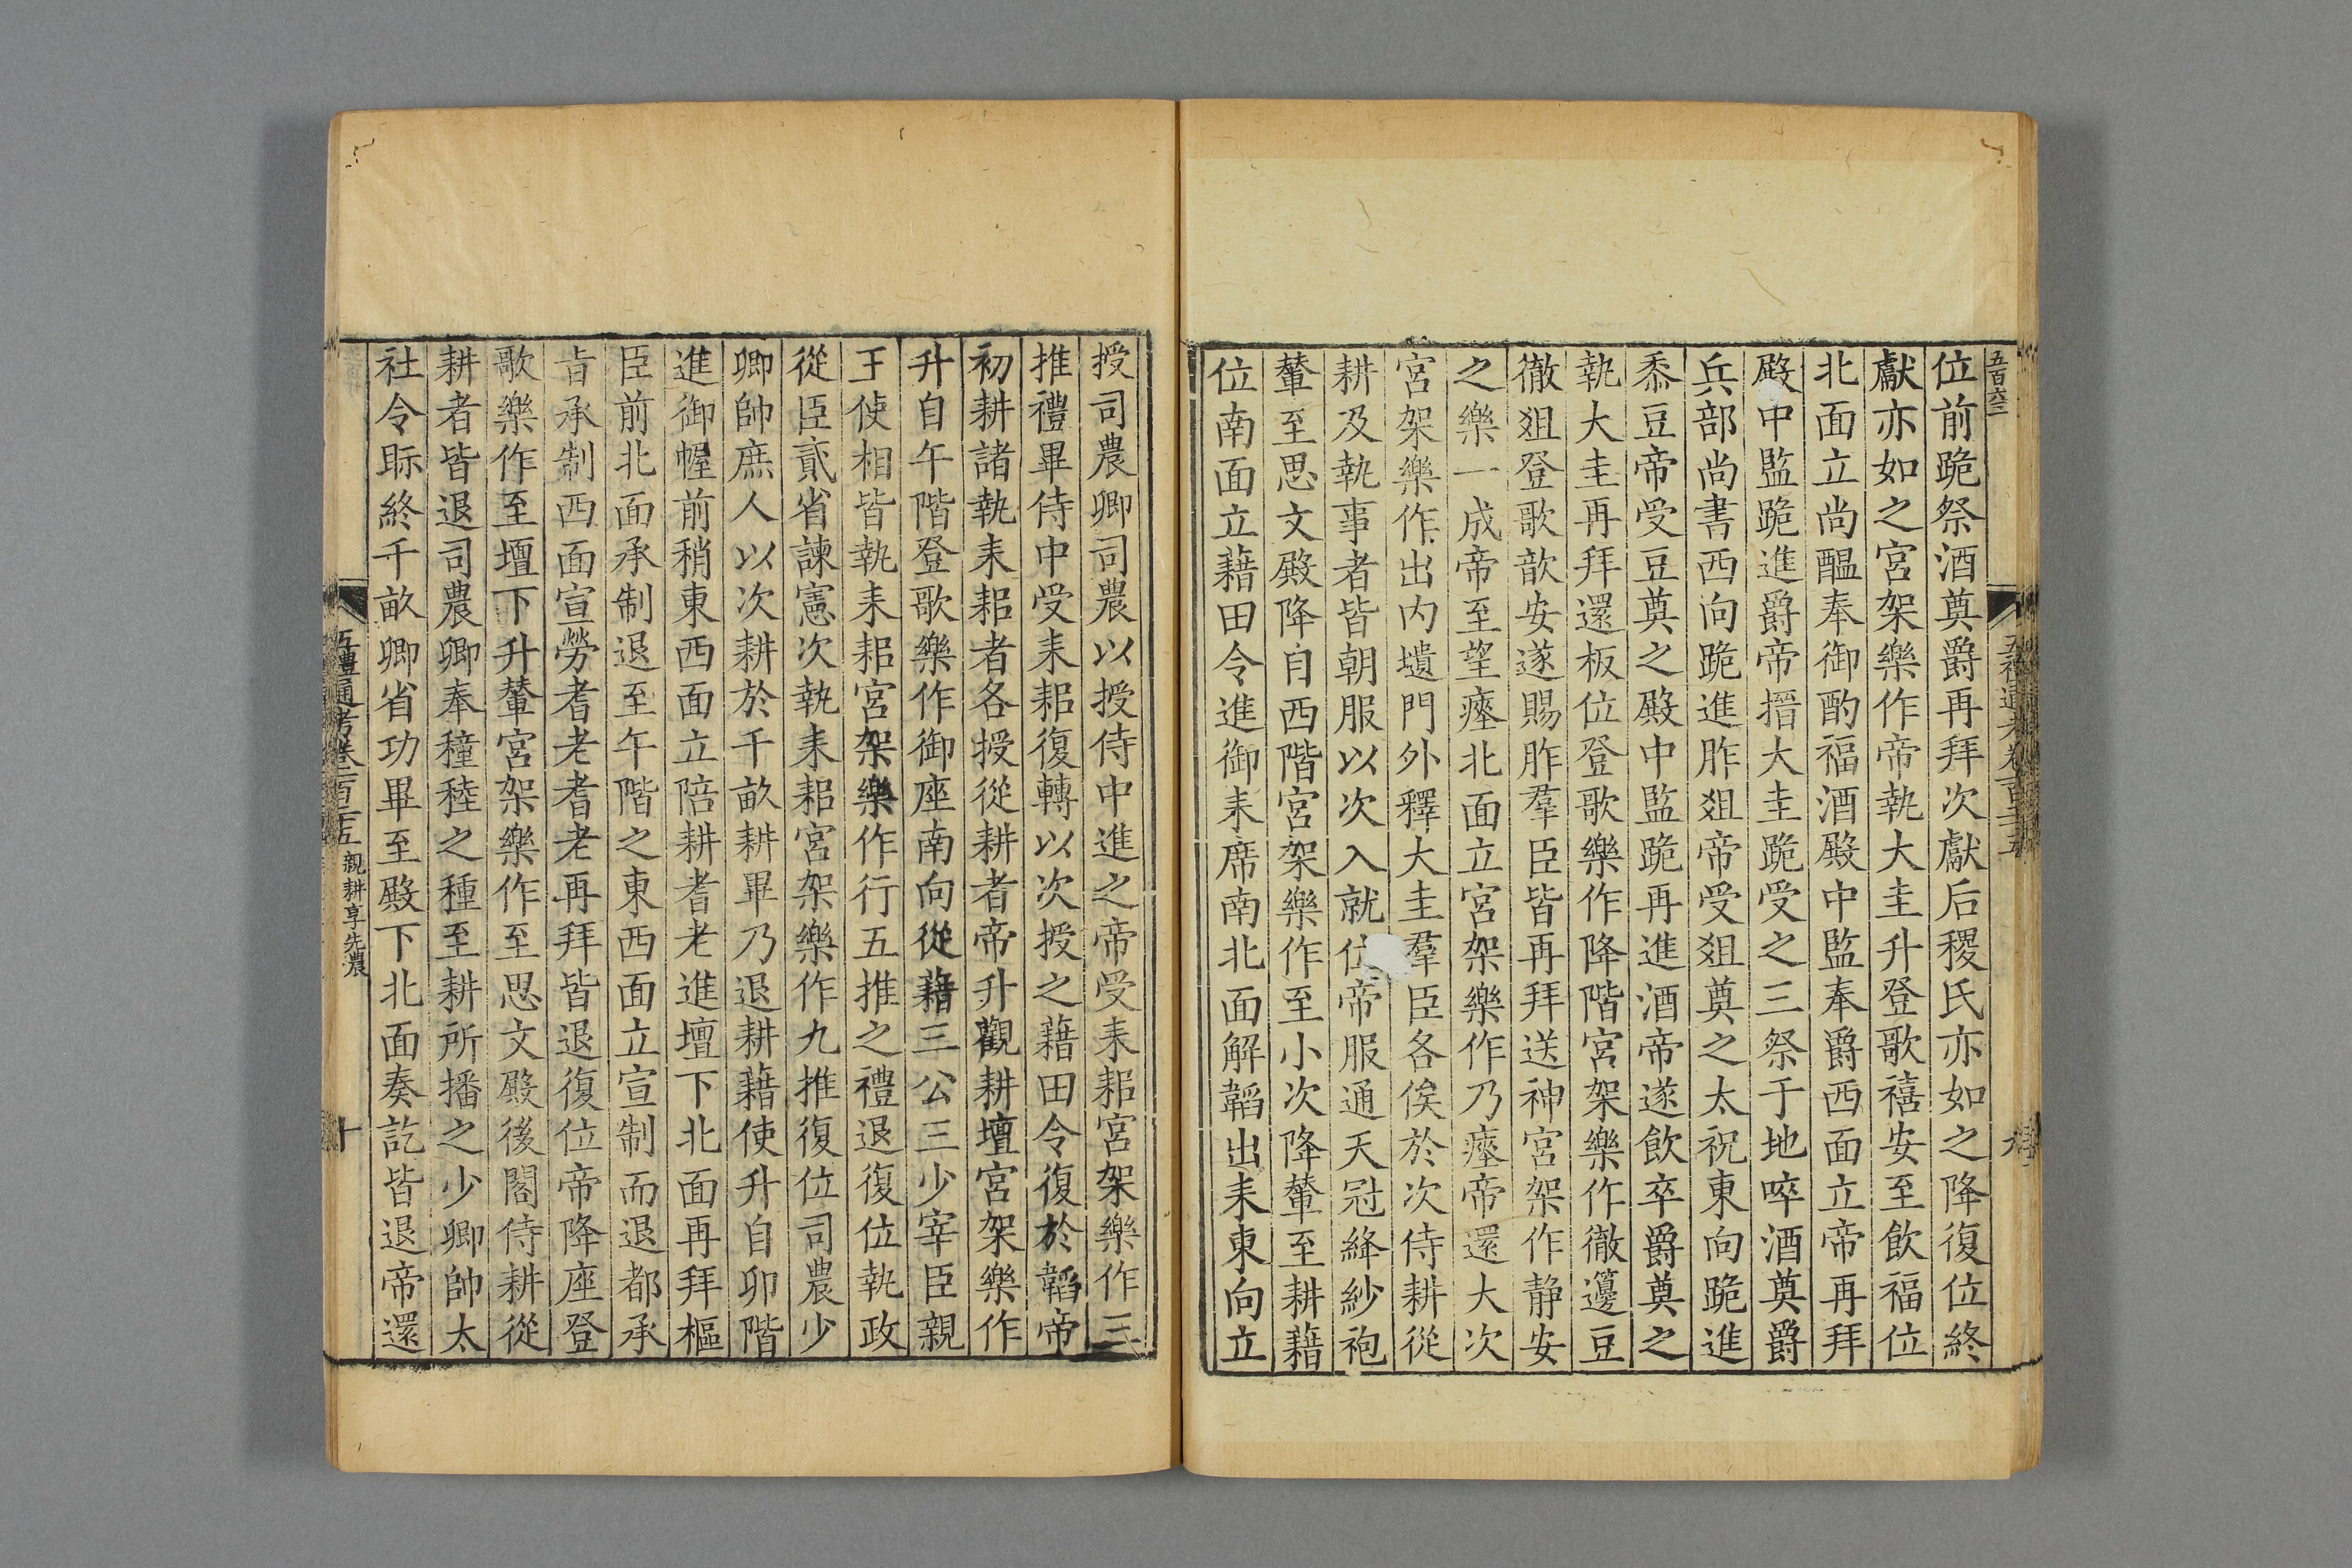 五百六三
位前跪祭酒奠爵再拜次獻后稷氏亦如之降復位終
獻亦如之宮架樂作帝執大圭升登歌禧安至飲福位
北面立尚醞奉御酌福酒殿中監奉爵西面立帝再拜
殿中監跪進爵帝搢大圭跪受之三祭于地啐酒奠爵
兵部尚書西向跪進胙俎帝受俎奠之太祝東向跪進
黍豆帝受豆奠之殿中監跪再進酒帝遂飲卒爵奠之
執大圭再拜還板位登歌樂作降階宮架樂作徹籩豆
徹俎登歌歆安遂賜胙羣臣皆再拜送神宮架作静安
之樂一成帝至望瘞北面立宮架樂作乃瘞帝還大次
宮架樂作出内壝門外釋大圭羣臣各俟於次侍耕從
耕及執事者皆朝服以次入就位帝服通天冠絳紗袍
輦至思文殿降自西階宮架樂作至小次降輦至耕藉
位南面立藉田令進御耒席南北面解韜出耒東向立
授司農卿司農以授侍中進之帝受耒耜宮架樂作三
推禮畢侍中受耒耜復轉以次授之藉田令復於韜帝
初耕諸執耒耜者各授從耕者帝升觀耕壇宮架樂作
升自午階登歌樂作御座南向從藉三公三少宰臣親
王使相皆執耒耜宮架樂作行五推之禮退復位執政
從臣貳省諫憲次執耒耜宮架樂作九推復位司農少
卿帥庶人以次耕於千畝耕畢乃退耕藉使升自卯階
進御幄前稍東西面立陪耕耆老進壇下北面再拜樞
臣前北面承制退至午階之東西面立宣制而退都承
旨承制西面宣勞耆老耆老再拜皆退復位帝降座登
歌樂作至壇下升輦宮架樂作至思文殿後閣侍耕從
耕者皆退司農卿奉穜稑之種至耕所播之少卿帥太
社令眎終千畝卿省功畢至殿下北面奏訖皆退帝還
五禮通考卷一百二十五 親耕享先農
十